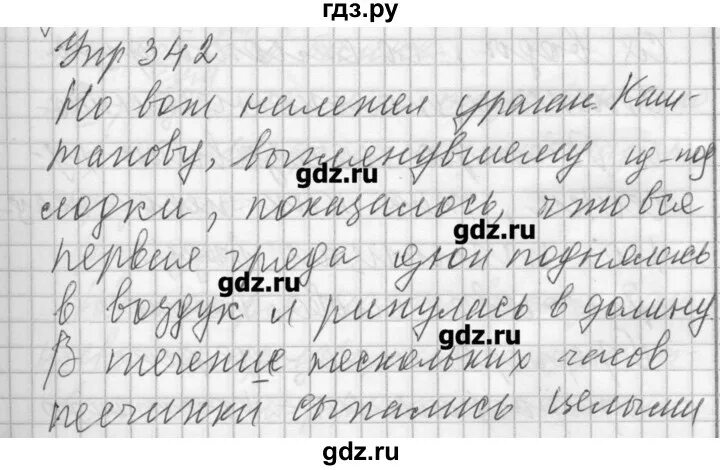 гдз.ру
Упр 342
Но вот налетел ураган. Каш-
танову, выглянувшему из-под
gdz.ru
лодки, показалось, что вся
gdz.ru
первая гряда дюн поднялась
gdz.ru
в воздух и ринулась в долину
gdz.ru
В течение нескольких часов
песчинки сыпались целыми
gdz.ru